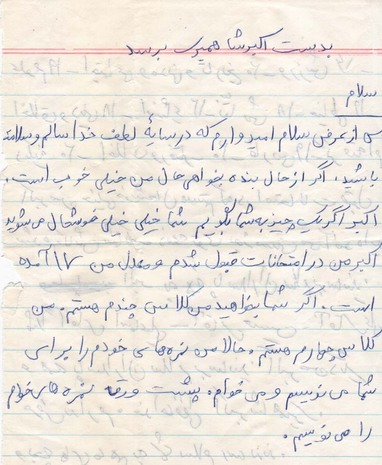 بدست اکبر شاهمیری برسد
سلام
پس از عرض سلام امیدوارم که در سایهٔ لطف خدا سالم و سلامت
باشید. اگر از حال بنده بخواهی حال من خیلی خوب است.
اکبر اگر یک چیز به شما بگویم شما خیلی خیلی خوشحال می‌شوید
اکبر من در امتحانات قبول شدم و معدل من ۱۸/۲ آمده
است. اگر شما بخواهید من کلاس چندم هستم. من
کلاس چهارم هستم. حالا من نمره‌های خودم را برای
شما می نویسم و می خوام. پشت ورقه نمره های خوام
را می نویسم.